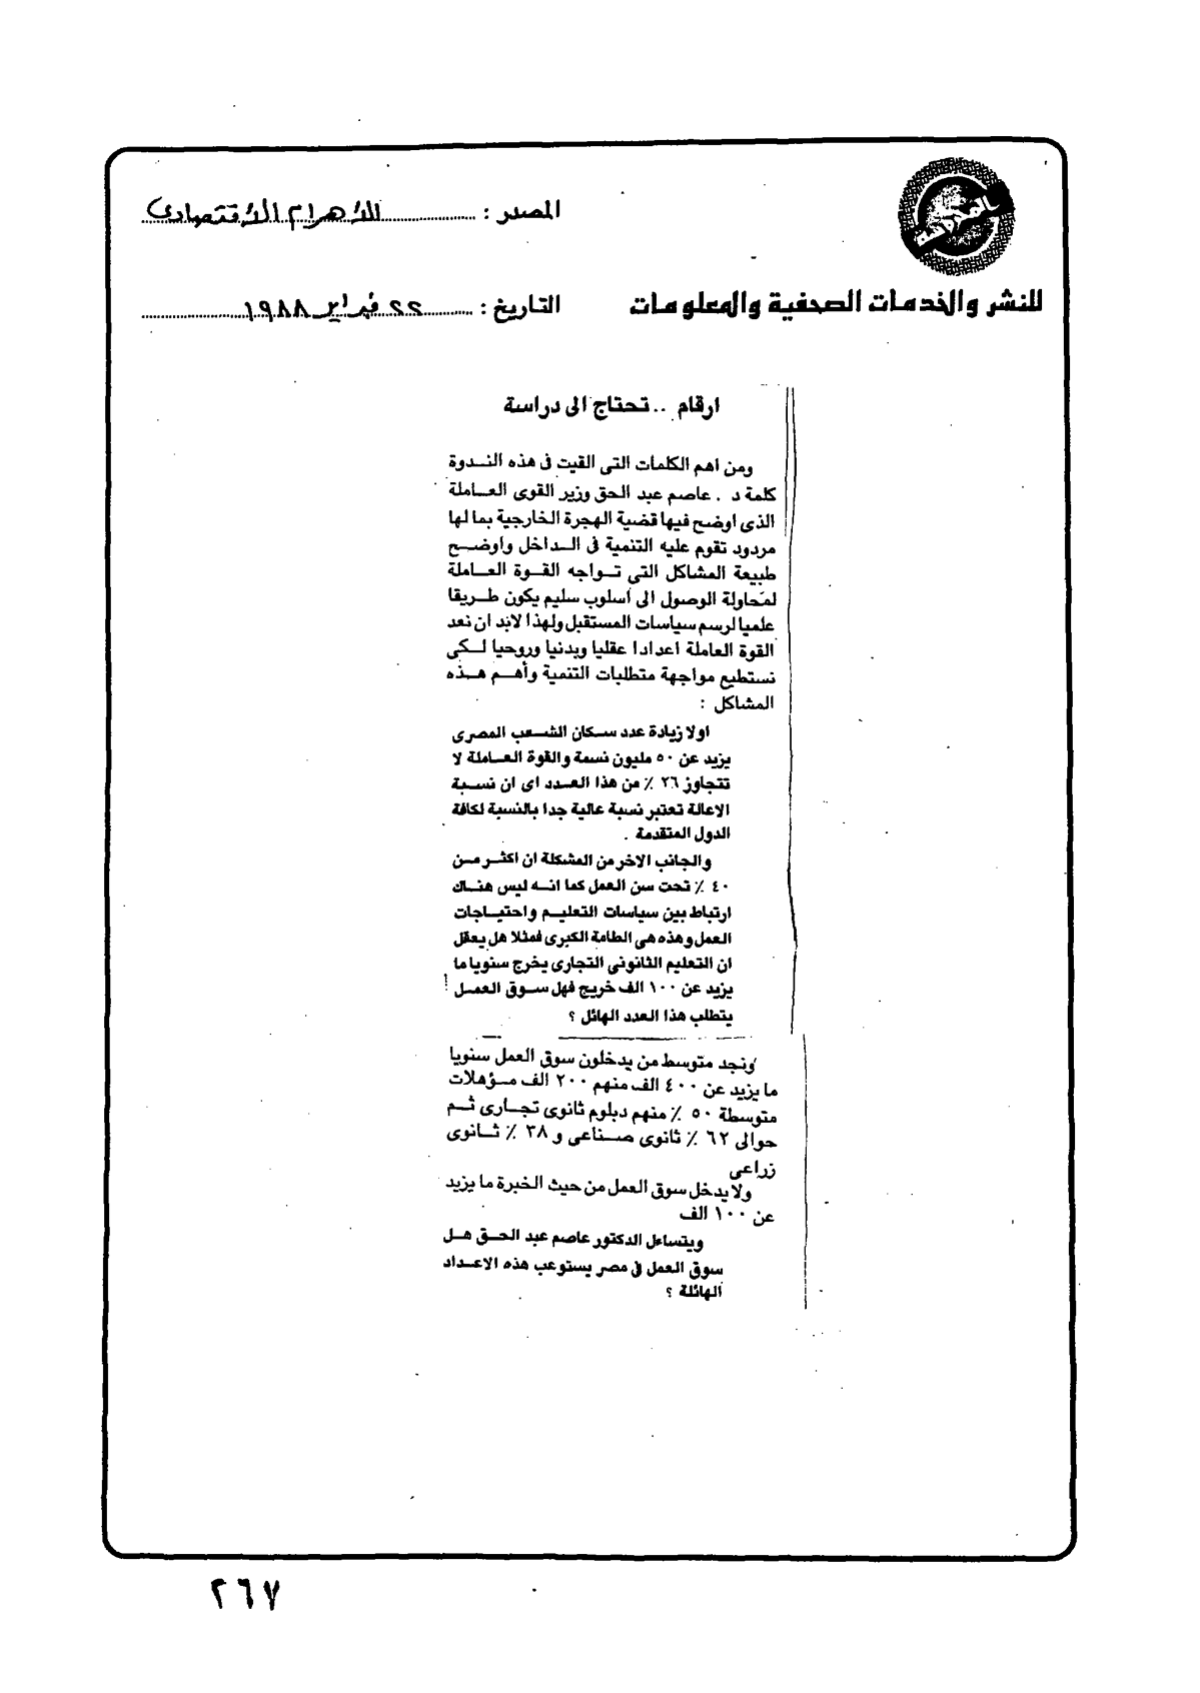 المصدر : الأهرام الاقتصادى
للنشر والخدمات الصحفية والمعلومات
التاريخ : ٢٢ فبراير ١٩٨٨
ارقام .. تحتاج الى دراسة
ومن اهم الكلمات التى القيت فى هذه الندوة
كلمة د . عاصم عبد الحق وزير القوى العاملة
الذى اوضح فيها قضية الهجرة الخارجية بما لها
مردود تقوم عليه التنمية فى الداخل واوضح
طبيعة المشاكل التى تواجه القوة العاملة
لمحاولة الوصول الى أسلوب سليم يكون طريقا
علميا لرسم سياسات المستقبل ولهذا لابد ان نعد
القوة العاملة اعدادا عقليا وبدنيا وروحيا لكى
نستطيع مواجهة متطلبات التنمية وأهم هذه
المشاكل :
اولا زيادة عدد سكان الشعب المصرى
يزيد عن ٥٠ مليون نسمة والقوة العاملة لا
تتجاوز ٢٦ ٪ من هذا العدد اى ان نسبة
الاعالة تعتبر نسبة عالية جدا بالنسبة لكافة
الدول المتقدمة .
والجانب الاخر من المشكلة ان اكثر من
٤٠ ٪ تحت سن العمل كما انه ليس هناك
ارتباط بين سياسات التعليم واحتياجات
العمل وهذه هى الطامة الكبرى فمثلا هل يعقل
ان التعليم الثانوى التجارى يخرج سنويا ما
يزيد عن ١٠٠ الف خريج فهل سوق العمل !
يتطلب هذا العدد الهائل ؟
ونجد متوسط من يدخلون سوق العمل سنويا
ما يزيد عن ٤٠٠ الف منهم ٢٠٠ الف مؤهلات
متوسطة ٥٠ ٪ منهم دبلوم ثانوى تجارى ثم
حوالى ٦٢ ٪ ثانوى صناعى و ٣٨ ٪ ثانوى
زراعى
ولا يدخل سوق العمل من حيث الخبرة ما يزيد
عن ١٠٠ الف
ويتساءل الدكتور عاصم عبد الحق هل
سوق العمل فى مصر يستوعب هذه الاعداد
الهائلة ؟
٢٦٧